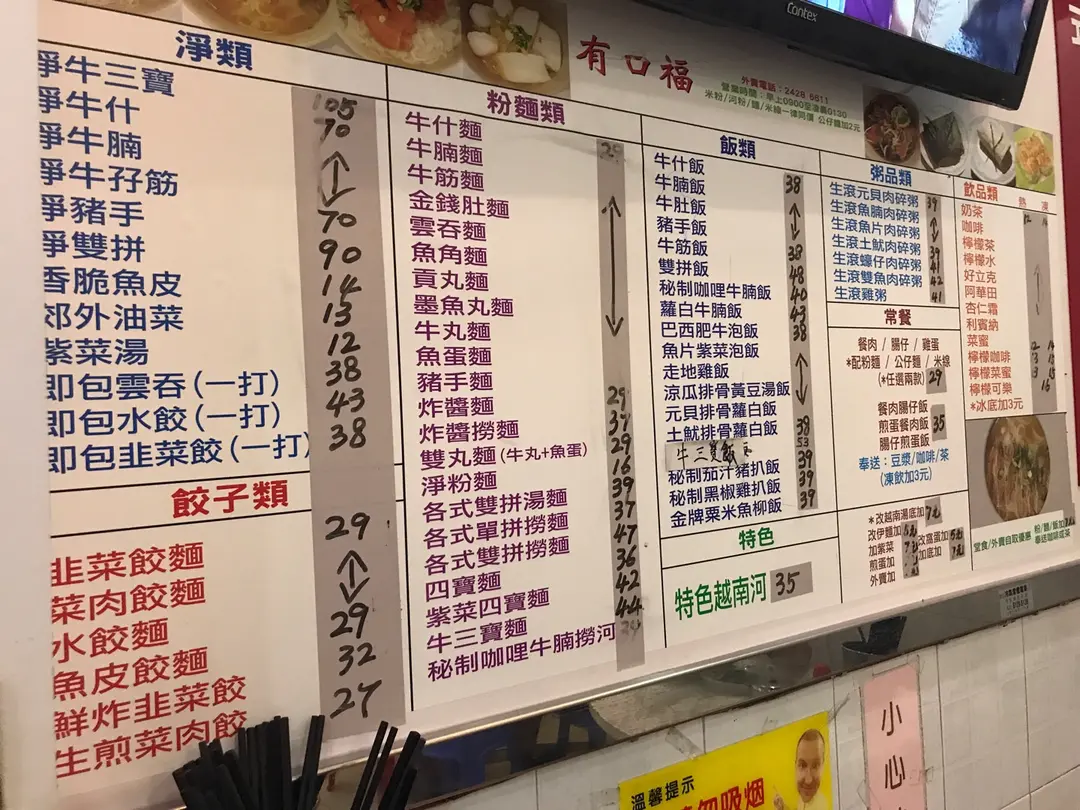 Contex
有口福
外賣電話：2428 6611
營業時間：早上0900至凌晨0130
米粉/河粉/麵/米線一律同價 公仔麵加2元
淨類
淨牛三寶 105
淨牛什 70
淨牛腩
淨牛孖筋
淨豬手 70
淨雙拼 90
香脆魚皮 14
郊外油菜 13
紫菜湯 12
即包雲吞(一打) 38
即包水餃(一打) 43
即包韭菜餃(一打) 38
餃子類
韭菜餃麵 29
菜肉餃麵
水餃麵
魚皮餃麵 29
鮮炸韭菜餃 32
生煎菜肉餃 27
粉麵類
牛什麵 29
牛腩麵
牛筋麵
金錢肚麵
雲吞麵
魚角麵
貢丸麵
墨魚丸麵
牛丸麵
魚蛋麵
豬手麵
炸醬麵 29
炸醬撈麵 37
雙丸麵(牛丸+魚蛋) 29
淨粉麵 16
各式雙拼湯麵 39
各式單拼撈麵 37
各式雙拼撈麵 47
四寶麵 36
紫菜四寶麵 42
牛三寶麵 44
秘制咖哩牛腩撈河 39
飯類
牛什飯 38
牛腩飯
牛肚飯
豬手飯
牛筋飯 38
雙拼飯 48
秘制咖哩牛腩飯 40
蘿白牛腩飯 43
巴西肥牛泡飯 38
魚片紫菜泡飯
走地雞飯
涼瓜排骨黃豆湯飯
元貝排骨蘿白飯
土魷排骨蘿白飯 38
牛三寶飯 53
秘制茄汁豬扒飯 39
秘制黑椒雞扒飯 39
金牌粟米魚柳飯 39
特色
特色越南河 35
粥品類
生滾元貝肉碎粥 39
生滾魚腩肉碎粥
生滾魚片肉碎粥
生滾土魷肉碎粥 39
生滾蠔仔肉碎粥 41
生滾雙魚肉碎粥 42
生滾雞粥 41
常餐
餐肉 / 腸仔 / 雞蛋
*配粉麵 / 公仔麵 / 米線
(*任選兩款) 29
餐肉腸仔飯
煎蛋餐肉飯 35
腸仔煎蛋飯
奉送：豆漿/咖啡/茶
(凍飲加3元)
*改越南湯底加 7元
改伊麵加 改窩蛋加
加紫菜 加底加
煎蛋加
外賣加
飲品類 熱 凍
奶茶
咖啡
檸檬茶
檸檬水
好立克
阿華田
杏仁霜
利賓納
菜蜜
檸檬咖啡
檸檬菜蜜
檸檬可樂 16
*冰底加3元
堂食/外賣自取優惠
粉/麵/飯加
奉送咖啡底茶
溫馨提示
吸烟
小心